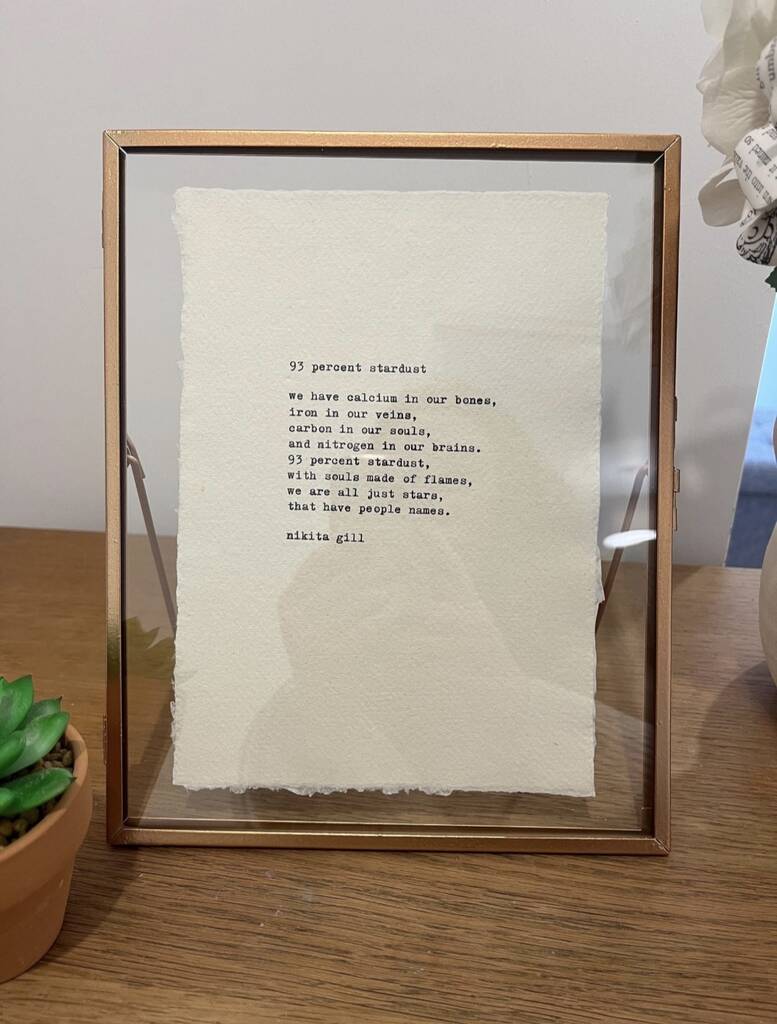 93 percent stardust
we have calcium in our bones,
iron in our veins,
carbon in our souls,
and nitrogen in our brains.
93 percent stardust,
with souls made of flames,
we are all just stars,
that have people names.
nikita gill